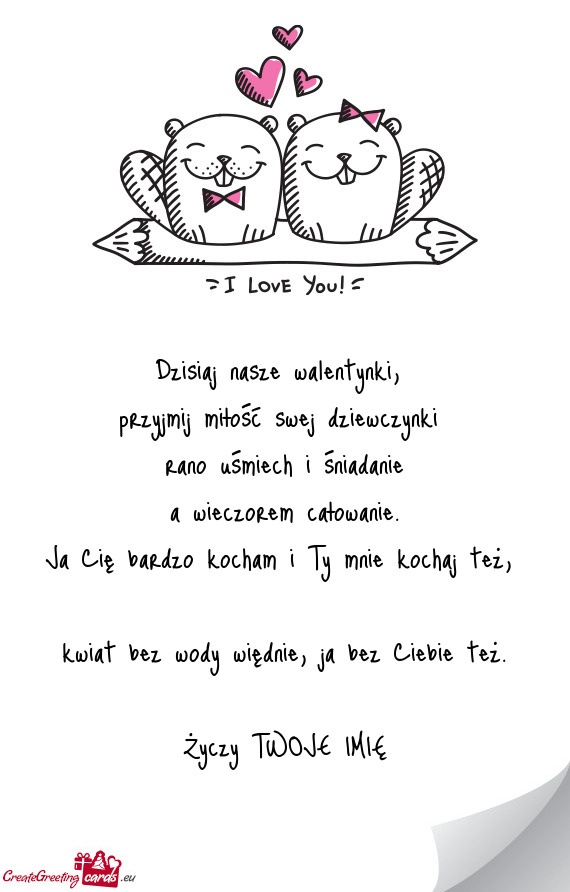 I LOVE YOU!
Dzisiaj nasze walentynki,
przyjmij miłość swej dziewczynki
rano uśmiech i śniadanie
a wieczorem całowanie.
Ja Cię bardzo kocham i Ty mnie kochaj też,
kwiat bez wody więdnie, ja bez Ciebie też.
Życzy TWOJE IMIĘ
CreateGreeting cards .eu